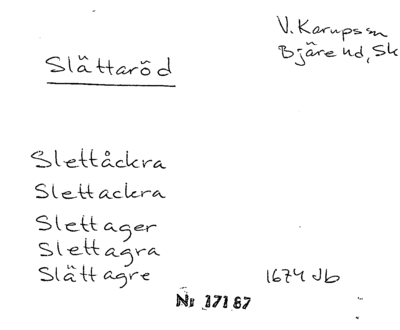 V. Karupssn
Bjäre hd, Sk
Slättaröd
Slettåckra
Slettackra
Slettager
Slettagra
Slättagre 1674 Jb
Nr 17187